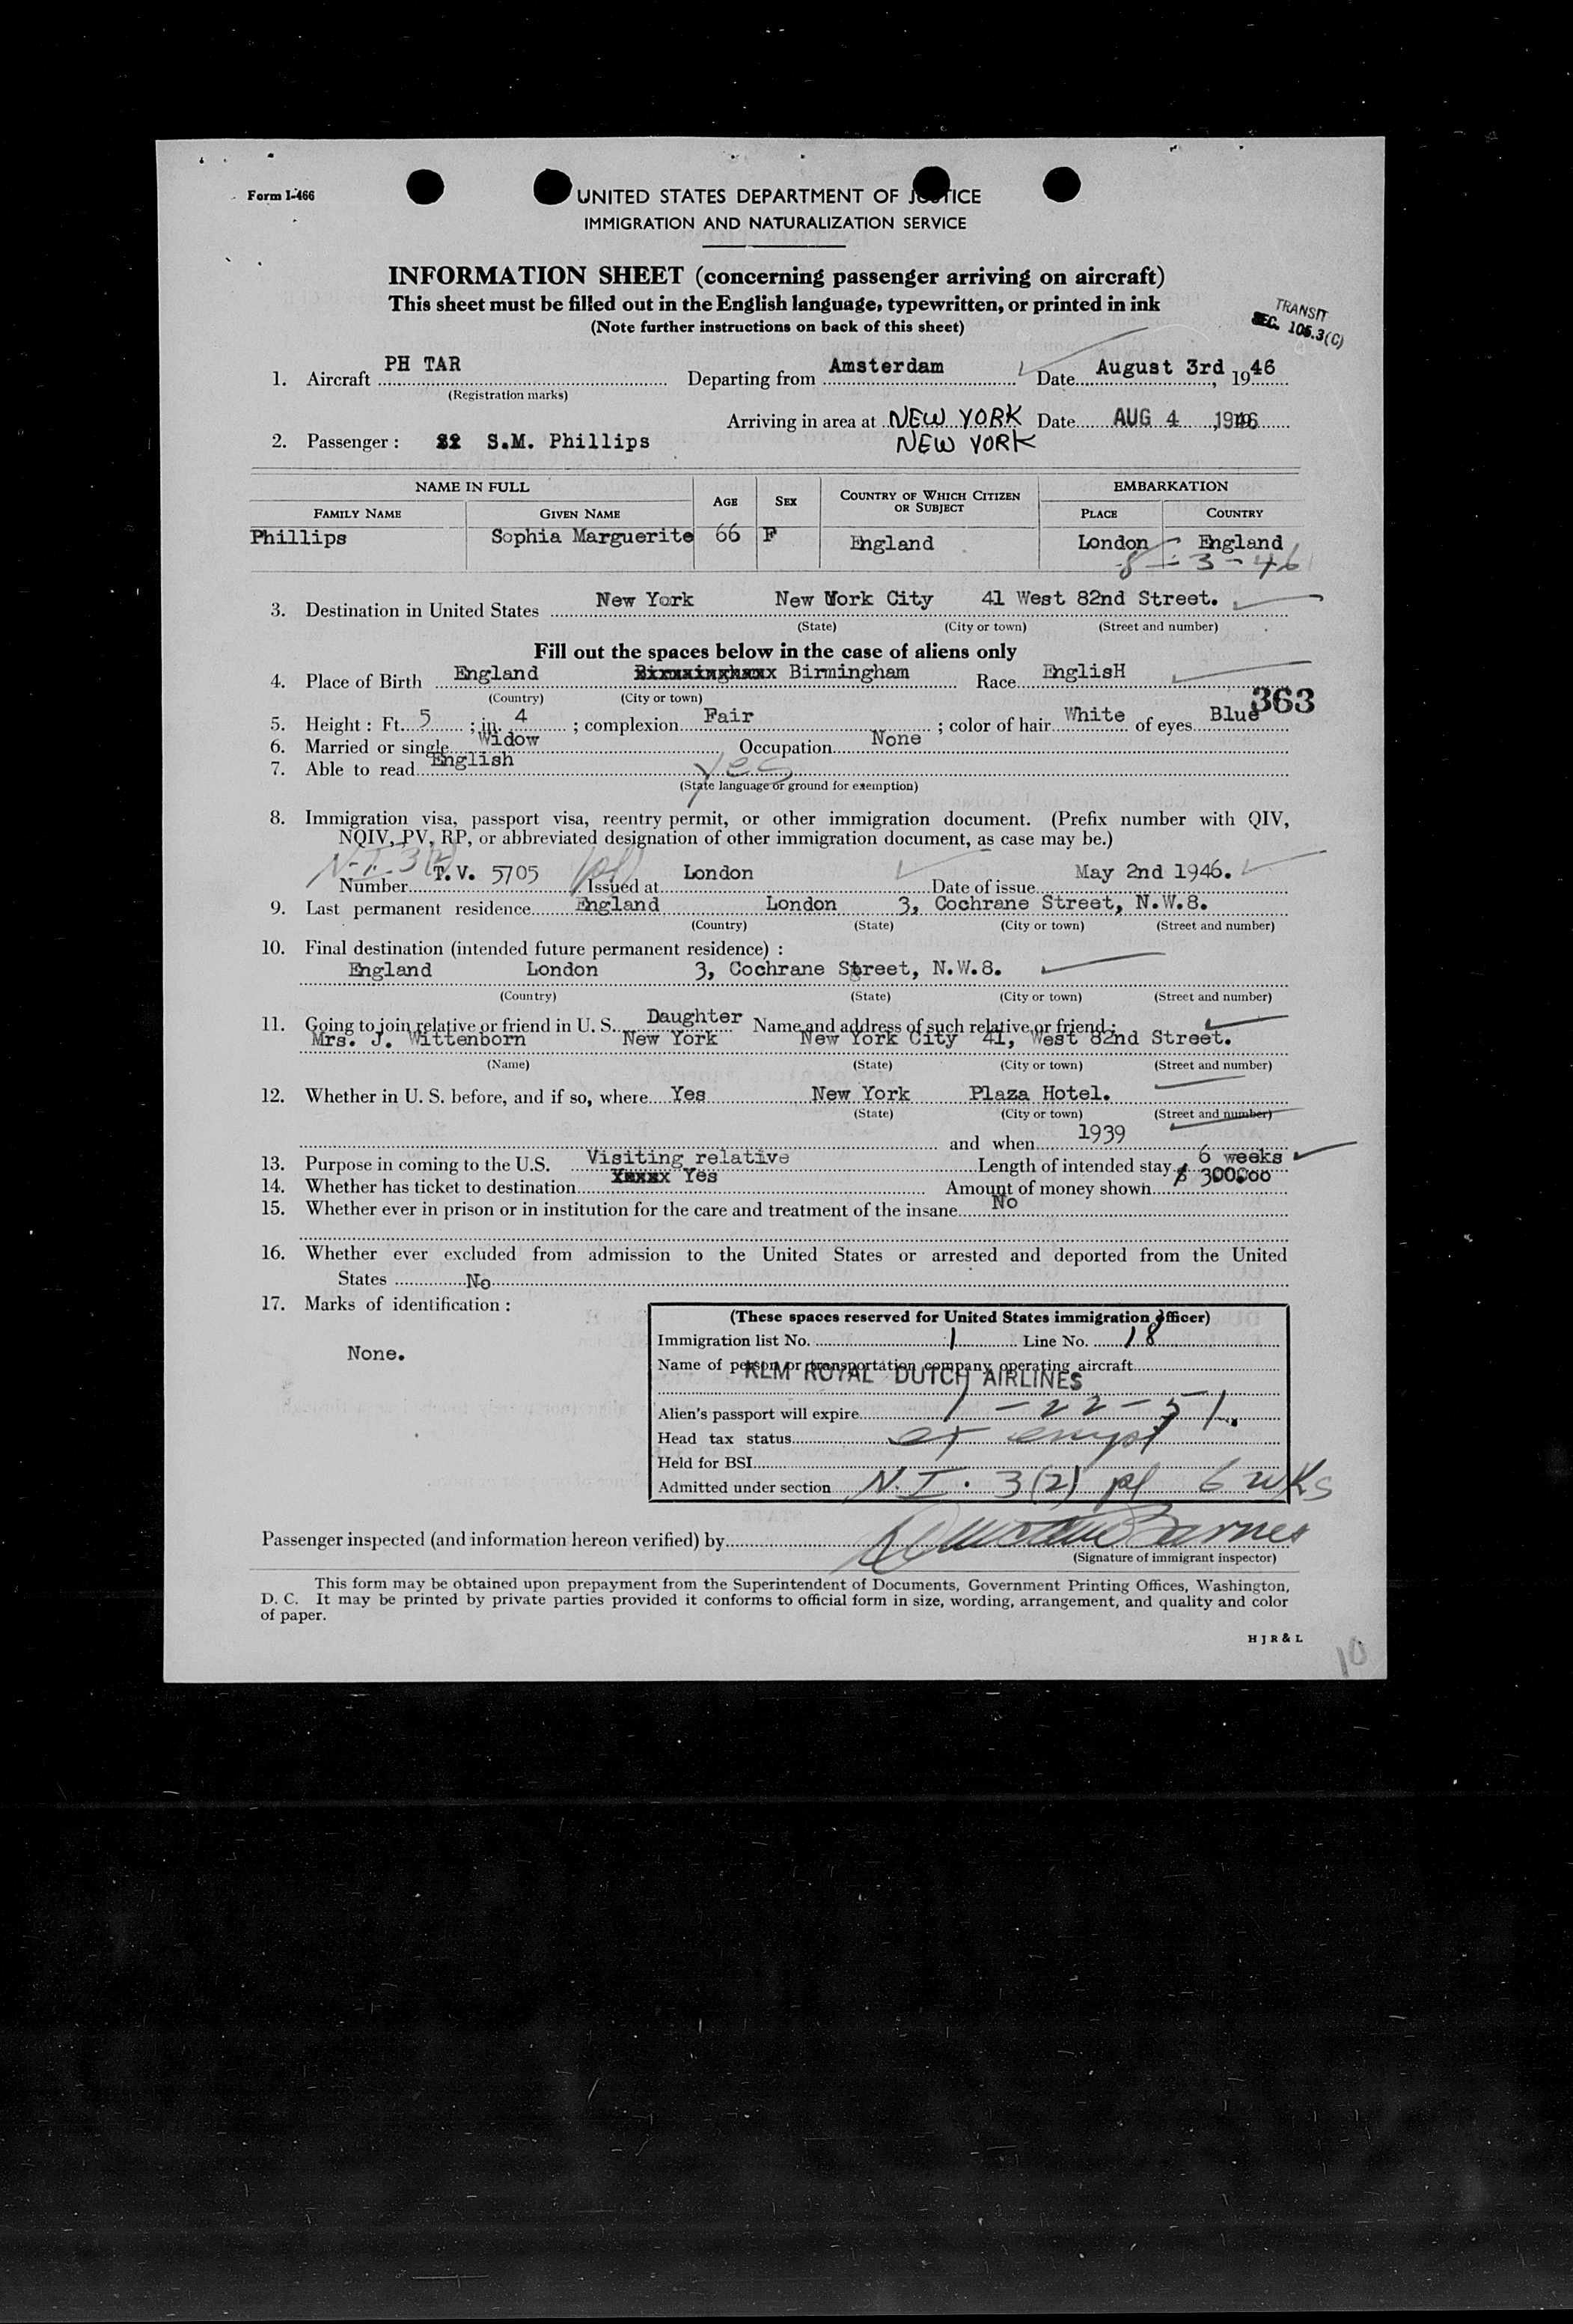 Form I-466
UNITED STATES DEPARTMENT OF JUSTICE
IMMIGRATION AND NATURALIZATION SERVICE
INFORMATION SHEET (concerning passenger arriving on aircraft)
This sheet must be filled out in the English language, typewritten, or printed in ink
(Note further instructions on back of this sheet)
TRANSIT
SEC. 105.3(C)
1. Aircraft PH TAR Departing from Amsterdam Date August 3rd, 1946
(Registration marks)
Arriving in area at NEW YORK Date AUG 4, 1946
2. Passenger: S.M. Phillips NEW YORK
NAME IN FULL AGE SEX COUNTRY OF WHICH CITIZEN OR SUBJECT EMBARKATION
FAMILY NAME GIVEN NAME PLACE COUNTRY
Phillips Sophia Marguerite 66 F England London England
8-3-46
3. Destination in United States New York New Work City 41 West 82nd Street.
(State) (City or town) (Street and number)
Fill out the spaces below in the case of aliens only
4. Place of Birth England Birmingham Race EnglisH
(Country) (City or town)
363
5. Height: Ft. 5; in. 4; complexion Fair; color of hair White of eyes Blue
6. Married or single Widow Occupation None
7. Able to read English yes
(State language or ground for exemption)
8. Immigration visa, passport visa, reentry permit, or other immigration document. (Prefix number with QIV,
NQIV, PV, RP, or abbreviated designation of other immigration document, as case may be.)
N.I. 3(2)
Number T.V. 5705 Issued at London Date of issue May 2nd 1946.
9. Last permanent residence England London 3, Cochrane Street, N.W.8.
(Country) (State) (City or town) (Street and number)
10. Final destination (intended future permanent residence):
England London 3, Cochrane Street, N.W.8.
(Country) (State) (City or town) (Street and number)
11. Going to join relative or friend in U. S. Daughter Name and address of such relative or friend:
Mrs. J. Wittenborn New York New York City 41, West 82nd Street.
(Name) (State) (City or town) (Street and number)
12. Whether in U. S. before, and if so, where Yes New York Plaza Hotel.
(State) (City or town) (Street and number)
and when 1939
13. Purpose in coming to the U.S. Visiting relative Length of intended stay 6 weeks
14. Whether has ticket to destination Yes Amount of money shown $ 300.00
15. Whether ever in prison or in institution for the care and treatment of the insane No
16. Whether ever excluded from admission to the United States or arrested and deported from the United
States No
17. Marks of identification:
None.
(These spaces reserved for United States immigration officer)
Immigration list No. 1 Line No. 18
Name of person or transportation company operating aircraft
KLM ROYAL DUTCH AIRLINES
Alien's passport will expire 1-22-51.
Head tax status exempt
Held for BSI
Admitted under section N.I. 3(2) pl 6 wks
Passenger inspected (and information hereon verified) by Barnes
(Signature of immigrant inspector)
This form may be obtained upon prepayment from the Superintendent of Documents, Government Printing Offices, Washington,
D. C. It may be printed by private parties provided it conforms to official form in size, wording, arrangement, and quality and color
of paper.
H J R & L
10